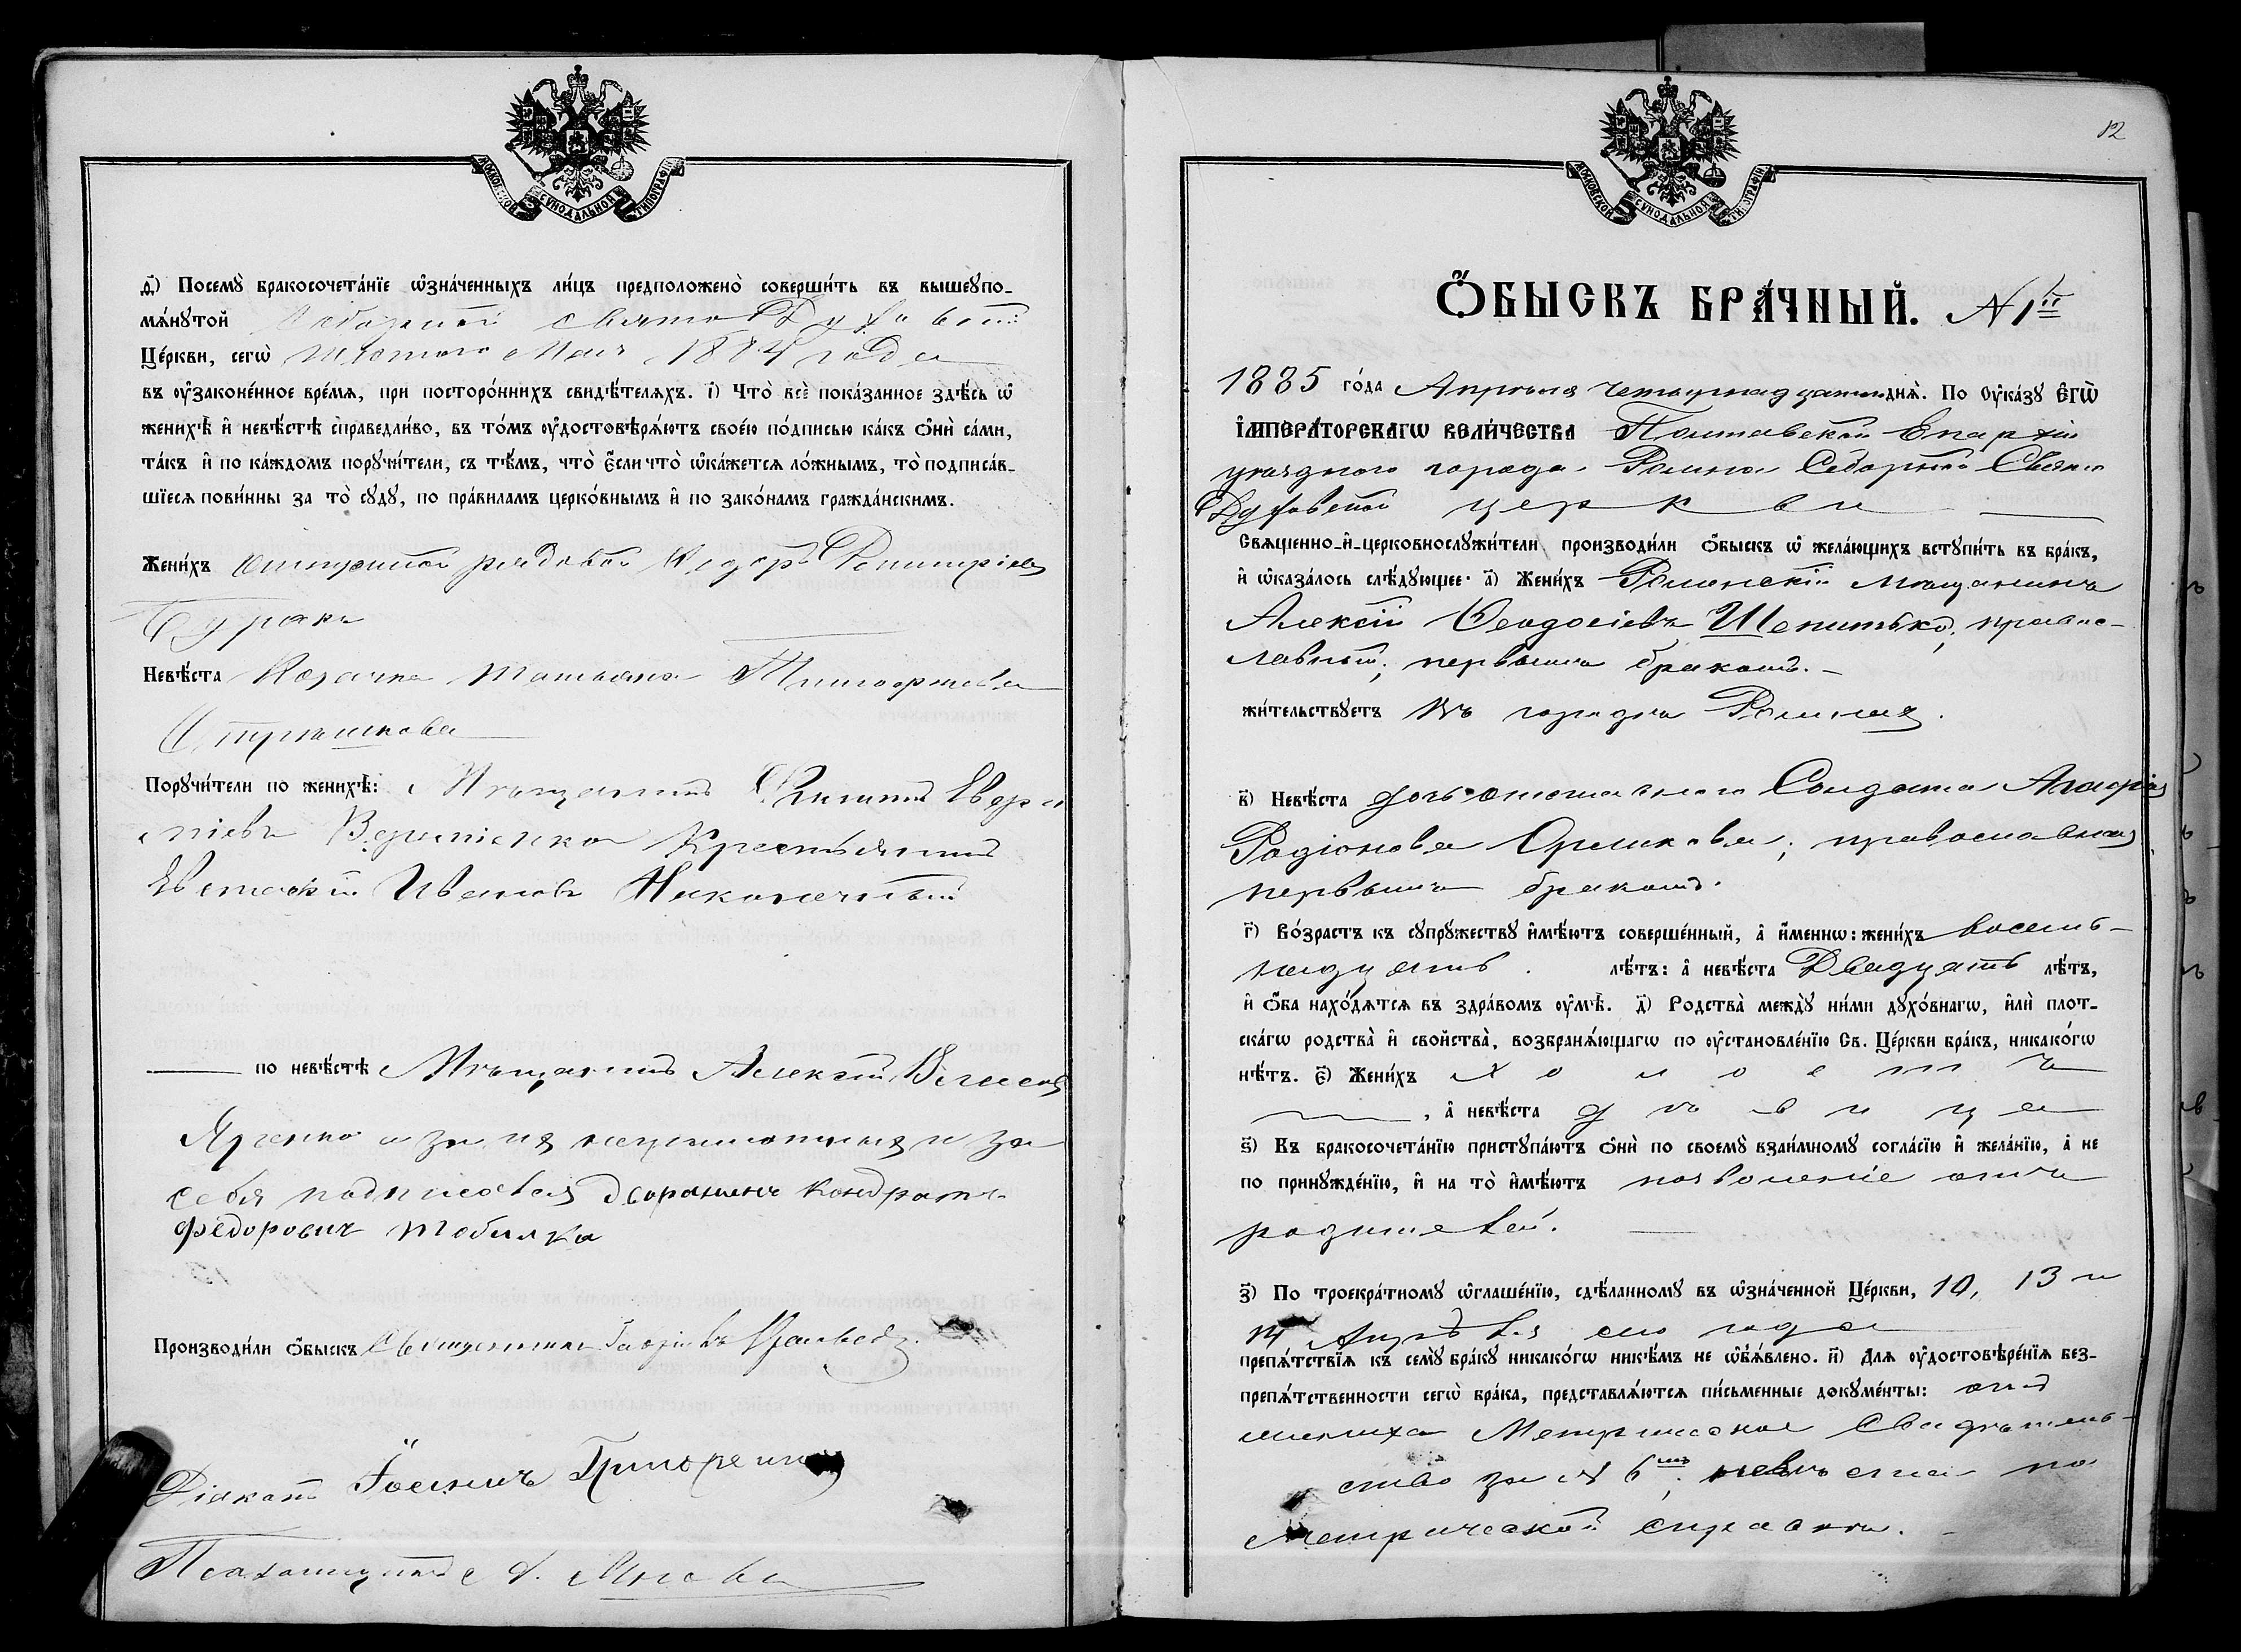 МОСКОВСКОЙ СѴНОДАЛЬНОЙ ТИПОГРАФІИ
д҃) Посемꙋ̀ бракосочета́нїе ѡ҆зна́ченныхъ ли́цъ предположено̀ соверши́ть въ вышеꙋпо-
мѧ́нꙋтой Соборной Свято Духовской
Це́ркви, сегѡ̀ Мая 1884 года
въ ᲂу҆законе́нное вре́мѧ, при посторо́ннихъ свидѣ́телѧхъ. і҃) Что̀ всѐ пока́занное здѣ́сь ѡ҆
женихѣ̀ и҆ невѣ́стѣ справедли́во, въ то́мъ ᲂу҆достовѣрѧ́ютъ свое́ю по́дписью ка́къ ѻ҆нѝ са́ми,
та́къ и҆ по ка́ждомъ порꙋчи́тели, съ тѣ́мъ, что̀ є҆́сли что̀ ѡ҆ка́жетсѧ ло́жнымъ, то̀ подписа́в-
шїесѧ пови́нны за то̀ сꙋдꙋ̀, по пра́виламъ церко́внымъ и҆ по зако́намъ гражда́нскимъ.
Жени́хъ рядовой Федоръ Димитріевъ
Буракъ
Невѣ́ста Козачка Татьяна
Порꙋчи́тели по женихѣ̀: Мѣщанинъ
Крестьянинъ
Евстафій Ивановъ
по невѣ́стѣ Мѣщанинъ Алексѣй
Ярченко и за нея неграмотныя и за
себя подписался дворянинъ Кондратъ
Федоровичъ Тобилка
Производи́ли ѻ҆́быскъ Священникъ
Діаконъ Іоаннъ
Псаломщикъ
12
МОСКОВСКОЙ СѴНОДАЛЬНОЙ ТИПОГРАФІИ
Ѻ҆́БЫСКЪ БРА́ЧНЫЙ. № 1й
1885 го́да Апрѣля четырнадцатаго днѧ̀. По Оу҆ка́зꙋ Є҆ГѠ̀
І҆МПЕРА́ТОРСКАГѠ ВЕЛИ́ЧЕСТВА Полтавской Епархіи
уѣзднаго города Ромна Соборной Свято
Духовской церкви
Свѧщенно-и҆-церковнослꙋжи́тели производи́ли ѻ҆́быскъ ѡ҆ жела́ющихъ встꙋпи́ть въ бра́къ,
и҆ ѡ҆каза́лось слѣ́дꙋющее: а҃) Жени́хъ Роменскій мѣщанинъ
Алексій Феодосіевъ Шепитько, правос-
лавный, первымъ бракомъ.
жи́тельствꙋетъ въ городѣ Ромнахъ.
в҃) Невѣ́ста дочь отставнаго Солдата
Родіонова Орешкова, православная
первымъ бракомъ.
г҃) Во́зрастъ къ сꙋпрꙋ́жествꙋ и҆мѣ́ютъ соверше́нный, а҆ и҆́меннѡ: жени́хъ восемь-
надцать лѣ́тъ: а҆ невѣ́ста Двадцать лѣ́тъ,
и҆ ѻ҆́ба нахо́дѧтсѧ въ здра́вомъ ᲂу҆мѣ̀. д҃) Родства̀ междꙋ̀ ни́ми дꙋхо́внагѡ, и҆лѝ плот-
ска́гѡ родства̀ и҆ свойства̀, возбранѧ́ющагѡ по ᲂу҆становле́нїю Св. Це́ркви бра́къ, никако́гѡ
нѣ́тъ. є҃) Жени́хъ холостъ
, а҆ невѣ́ста дѣвица
ѕ҃) Въ бракосочета́нїю пристꙋпа́ютъ ѻ҆нѝ по своемꙋ̀ взаи́мномꙋ согла́сїю и҆ жела́нїю, а҆ не
по принꙋжде́нїю, и҆ на то̀ и҆мѣ́ютъ позволеніе отъ
родителей.
з҃) По троекра́тномꙋ ѡ҆глаше́нїю, сдѣ́ланномꙋ въ ѡ҆зна́ченной Це́ркви, 10, 13 и
14 Апрѣля сего года
препѧ́тствїѧ къ семꙋ̀ бра́кꙋ никако́гѡ никѣ́мъ не ѡ҆б̾ѧ́влено. и҃) Длѧ ᲂу҆достовѣре́нїѧ без-
препѧ́тственности сегѡ̀ бра́ка, представлѧ́ютсѧ пи́сьменные докꙋме́нты: отъ
жениха Метрическое Свидѣтель-
ство за № 6мъ; невѣста по
метрической справкѣ.